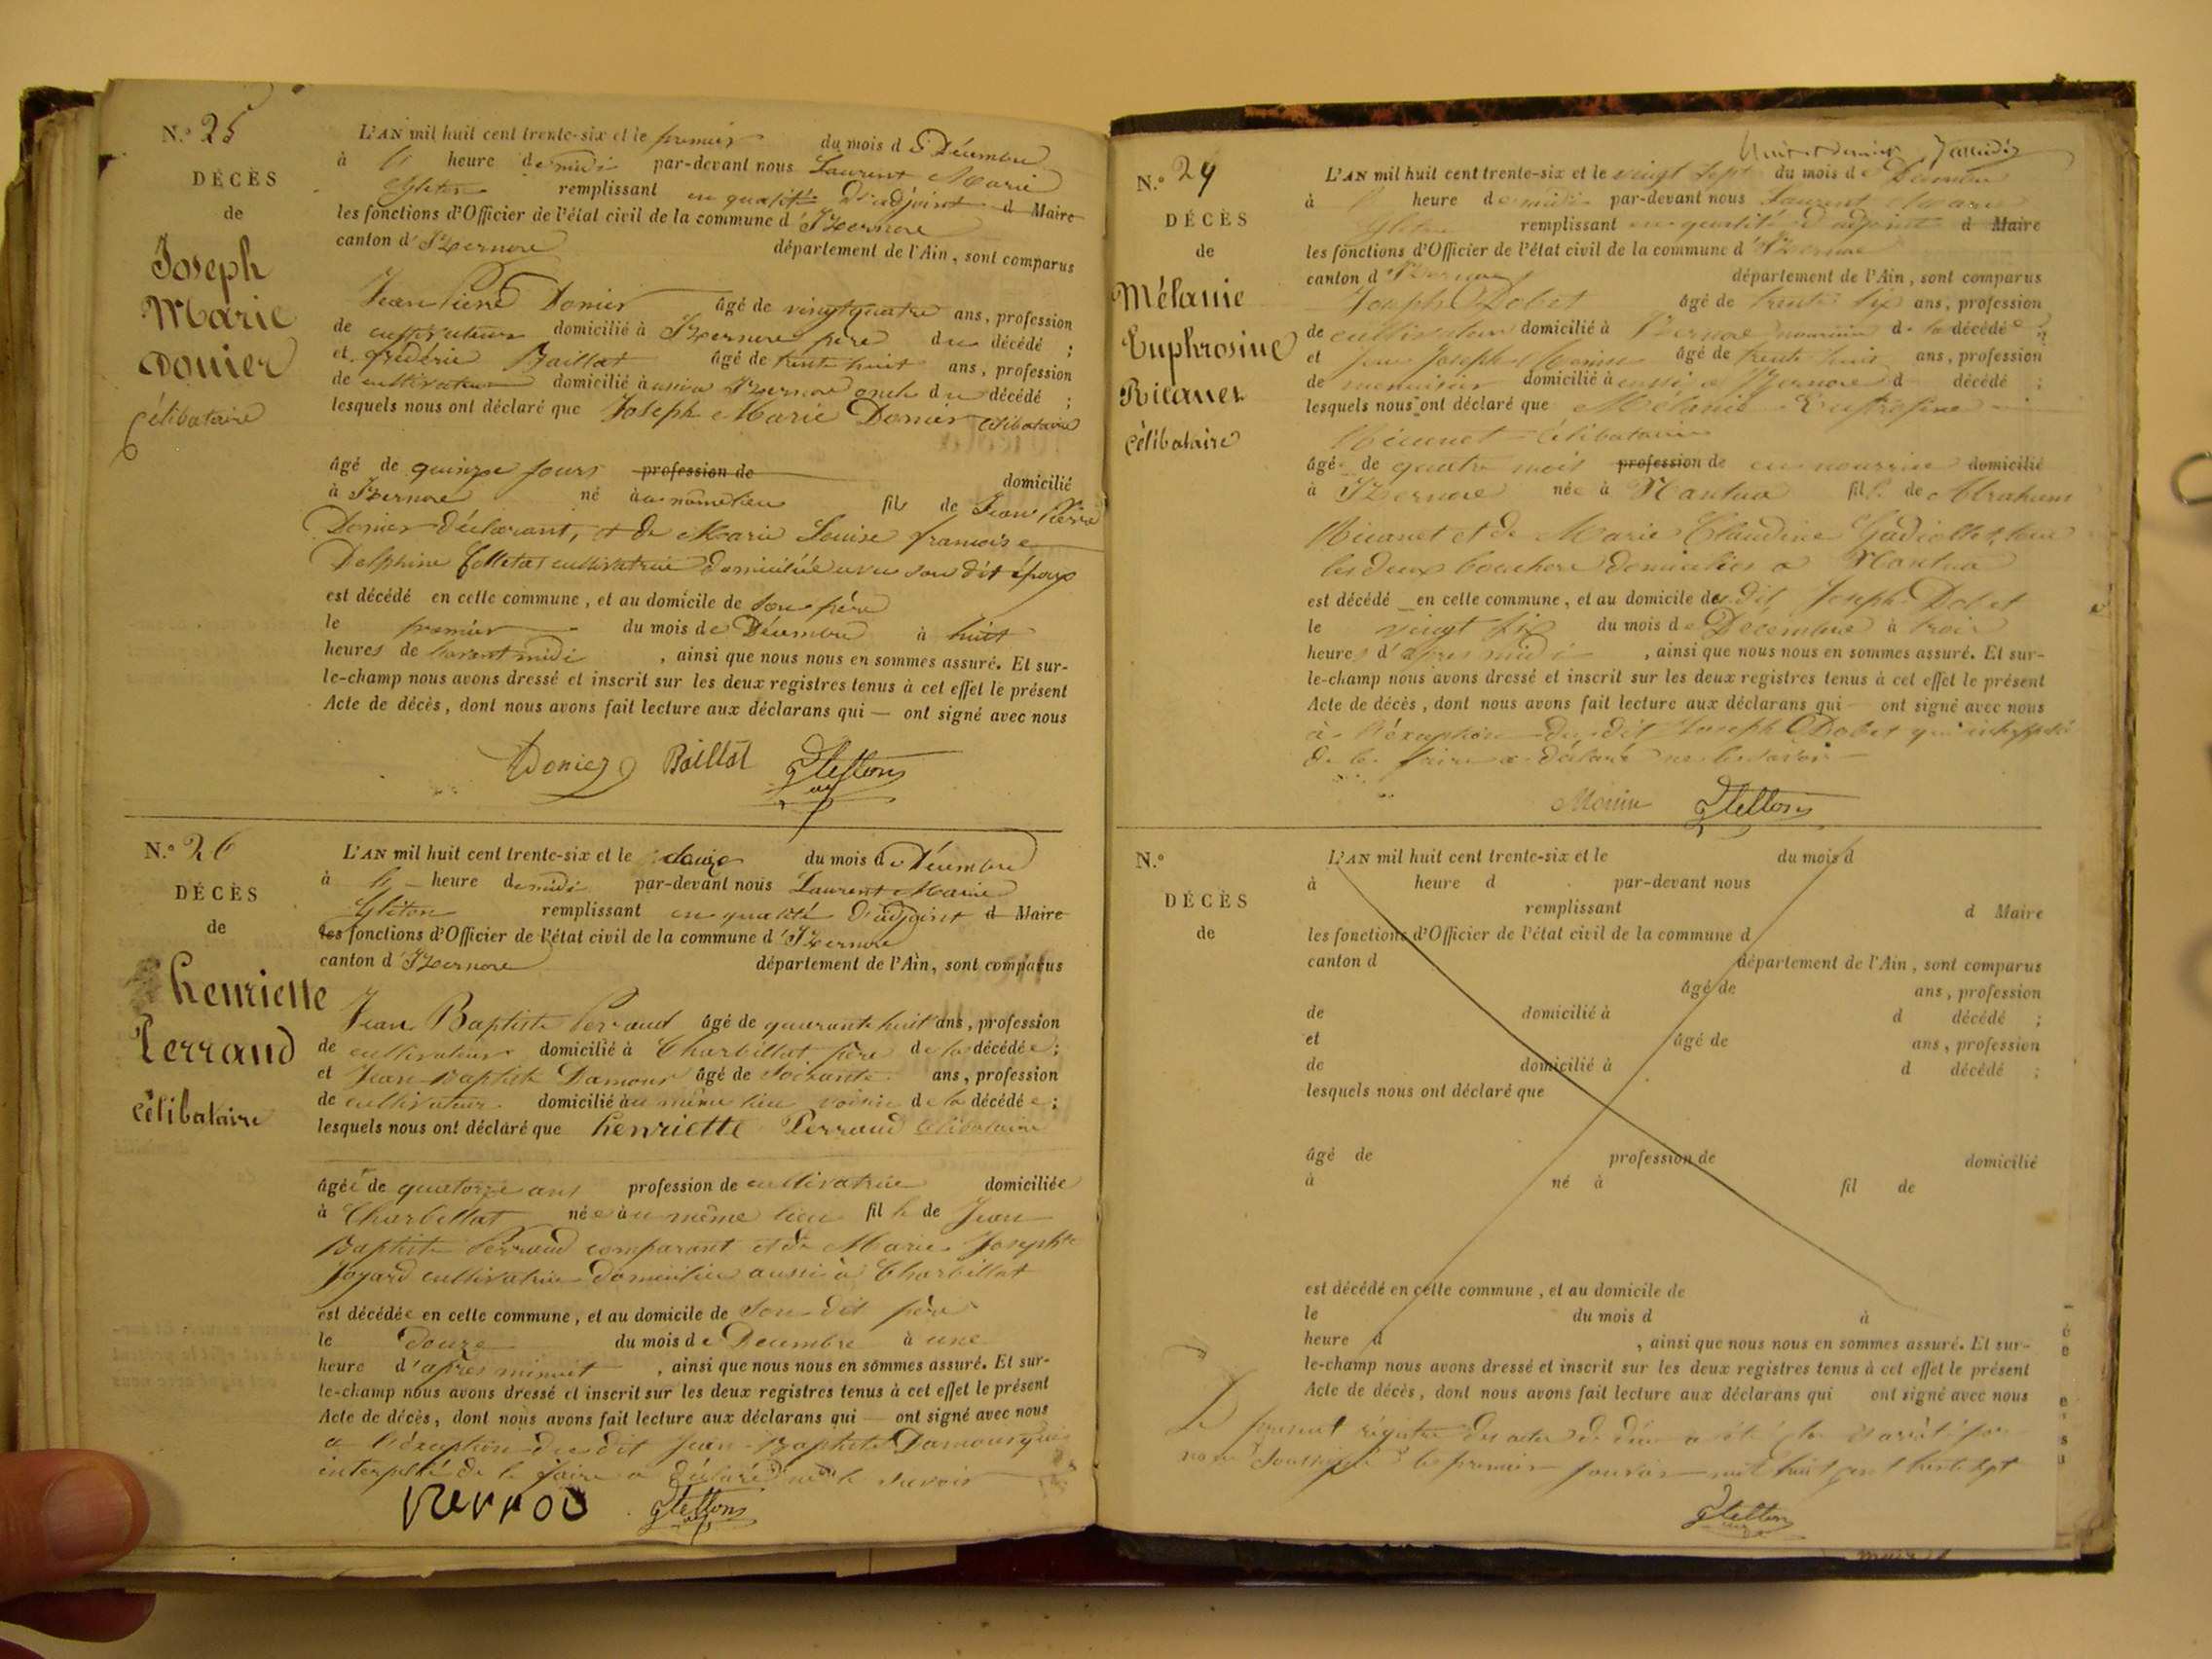 N.° 25
DÉCÈS
de
Joseph
Marie
Donier
célibataire
L'AN mil huit cent trente-six et le premier du mois de Décembre
à heure de midi par-devant nous Laurent Marie
remplissant en qualité d'adjoint d Maire
les fonctions d'Officier de l'état civil de la commune d'Izernore
canton d'Izernore département de l'Ain, sont comparus
Jean Pierre Donier âgé de vingt quatre ans, profession
de cultivateur domicilié à Izernore père du décédé ;
et fréderic Baillat âgé de trente huit ans, profession
de cultivateur domicilié aussi a Izernore oncle du décédé ;
lesquels nous ont déclaré que Joseph Marie Donier célibataire
âgé de quinze jours profession de domicilié
à Izernore né au même lieu fils de Jean Pierre
Donier déclarant, et de Marie Louise francoise
Delphine cultivatrice domiciliée avec son dit époux
est décédé en cette commune, et au domicile de son père
le premier du mois de Décembre à huit
heures de avant midi , ainsi que nous nous en sommes assuré. Et sur-
le-champ nous avons dressé et inscrit sur les deux registres tenus à cet effet le présent
Acte de décès, dont nous avons fait lecture aux déclarans qui — ont signé avec nous
Donier Baillat
N.° 26
DÉCÈS
de
henriette
Perraud
célibataire
L'AN mil huit cent trente-six et le douze du mois de Décembre
à heure de midi par-devant nous Laurent Marie
remplissant en qualité d'adjoint d Maire
les fonctions d'Officier de l'état civil de la commune d'Izernore
canton d'Izernore département de l'Ain, sont comparus
Jean Baptiste Perraud âgé de quarante huit ans, profession
de cultivateur domicilié à Charbillat père de la décédée ;
et Jean Baptiste Damour âgé de soixante ans, profession
de cultivateur domicilié au même lieu voisin de la décédée ;
lesquels nous ont déclaré que henriette Perraud célibataire
âgée de quatorze ans profession de cultivatrice domiciliée
à Charbillat née au même lieu fille de Jean
Baptiste Perraud comparant et de Marie Josephte
Joyard cultivatrice domiciliée aussi à Charbillat
est décédée en cette commune, et au domicile de son dit père
le douze du mois de Decembre à une
heure d'après minuit , ainsi que nous nous en sommes assuré. Et sur-
le-champ nous avons dressé et inscrit sur les deux registres tenus à cet effet le présent
Acte de décès, dont nous avons fait lecture aux déclarans qui — ont signé avec nous
a l'éxception du dit Jean Baptiste Damour qui
interpellé de le faire a déclaré ne le savoir
N.° 27
DÉCÈS
de
Mélanie
Euphrosine
Ricanet
célibataire
L'AN mil huit cent trente-six et le vingt sept du mois de Décembre
à heure de midi par-devant nous Laurent Marie
remplissant en qualité d'adjoint d Maire
les fonctions d'Officier de l'état civil de la commune d'Izernore
canton d'Izernore département de l'Ain, sont comparus
Joseph Dobet âgé de trente six ans, profession
de cultivateur domicilié à Izernore de la décédée ;
et Joseph âgé de trente huit ans, profession
de menuisier domicilié aussi a Izernore d décédé ;
lesquels nous ont déclaré que Mélanie
Ricanet célibataire
âgée de quatre mois profession de en nourrice domicilié
à Izernore née à Nantua fille de Abraham
Ricanet et de Marie Claudine
les deux domiciliés a Nantua
est décédé en cette commune, et au domicile du dit Joseph Dobet
le vingt six du mois de Décembre à trois
heures d'apres midi , ainsi que nous nous en sommes assuré. Et sur-
le-champ nous avons dressé et inscrit sur les deux registres tenus à cet effet le présent
Acte de décès, dont nous avons fait lecture aux déclarans qui — ont signé avec nous
à l'éxception du dit Joseph Dobet qui interpellé
de le faire a déclaré ne le savoir
N.°
DÉCÈS
de
L'AN mil huit cent trente-six et le du mois d
à heure d par-devant nous
remplissant d Maire
les fonctions d'Officier de l'état civil de la commune d
canton d département de l'Ain, sont comparus
âgé de ans, profession
de domicilié à d décédé ;
et âgé de ans, profession
de domicilié à d décédé ;
lesquels nous ont déclaré que
âgé de profession de domicilié
à né à fil de
est décédé en cette commune, et au domicile de
le du mois d à
heure d , ainsi que nous nous en sommes assuré. Et sur-
le-champ nous avons dressé et inscrit sur les deux registres tenus à cet effet le présent
Acte de décès, dont nous avons fait lecture aux déclarans qui ont signé avec nous
Le présent régistre des actes de décès a été clos et arrêté par
nous soussigné le premier janvier mil huit cent trente sept